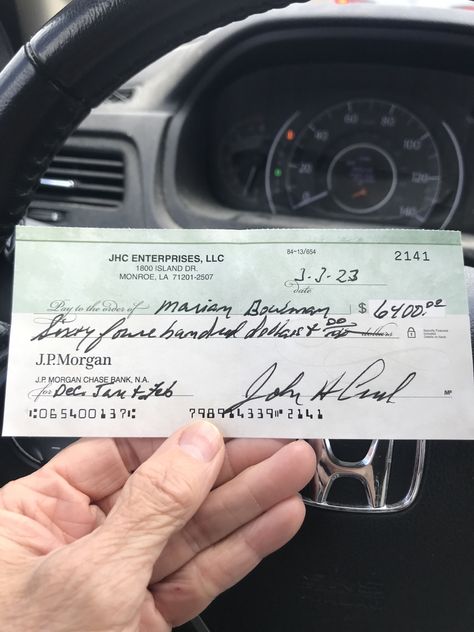 60
40 80
20 100
0 120
140
JHC ENTERPRISES, LLC 84-13/654 2141
1800 ISLAND DR.
MONROE, LA 71201-2507 3-3-23
date
Pay to the order of Marian Bowman $ 6400.00
Sixty four hundred dollars & 00 dollars
J.P.Morgan
J.P. MORGAN CHASE BANK, N.A.
for Dec, Jan & Feb John H MP
⑆065400137⑆ 798914339⑈2141